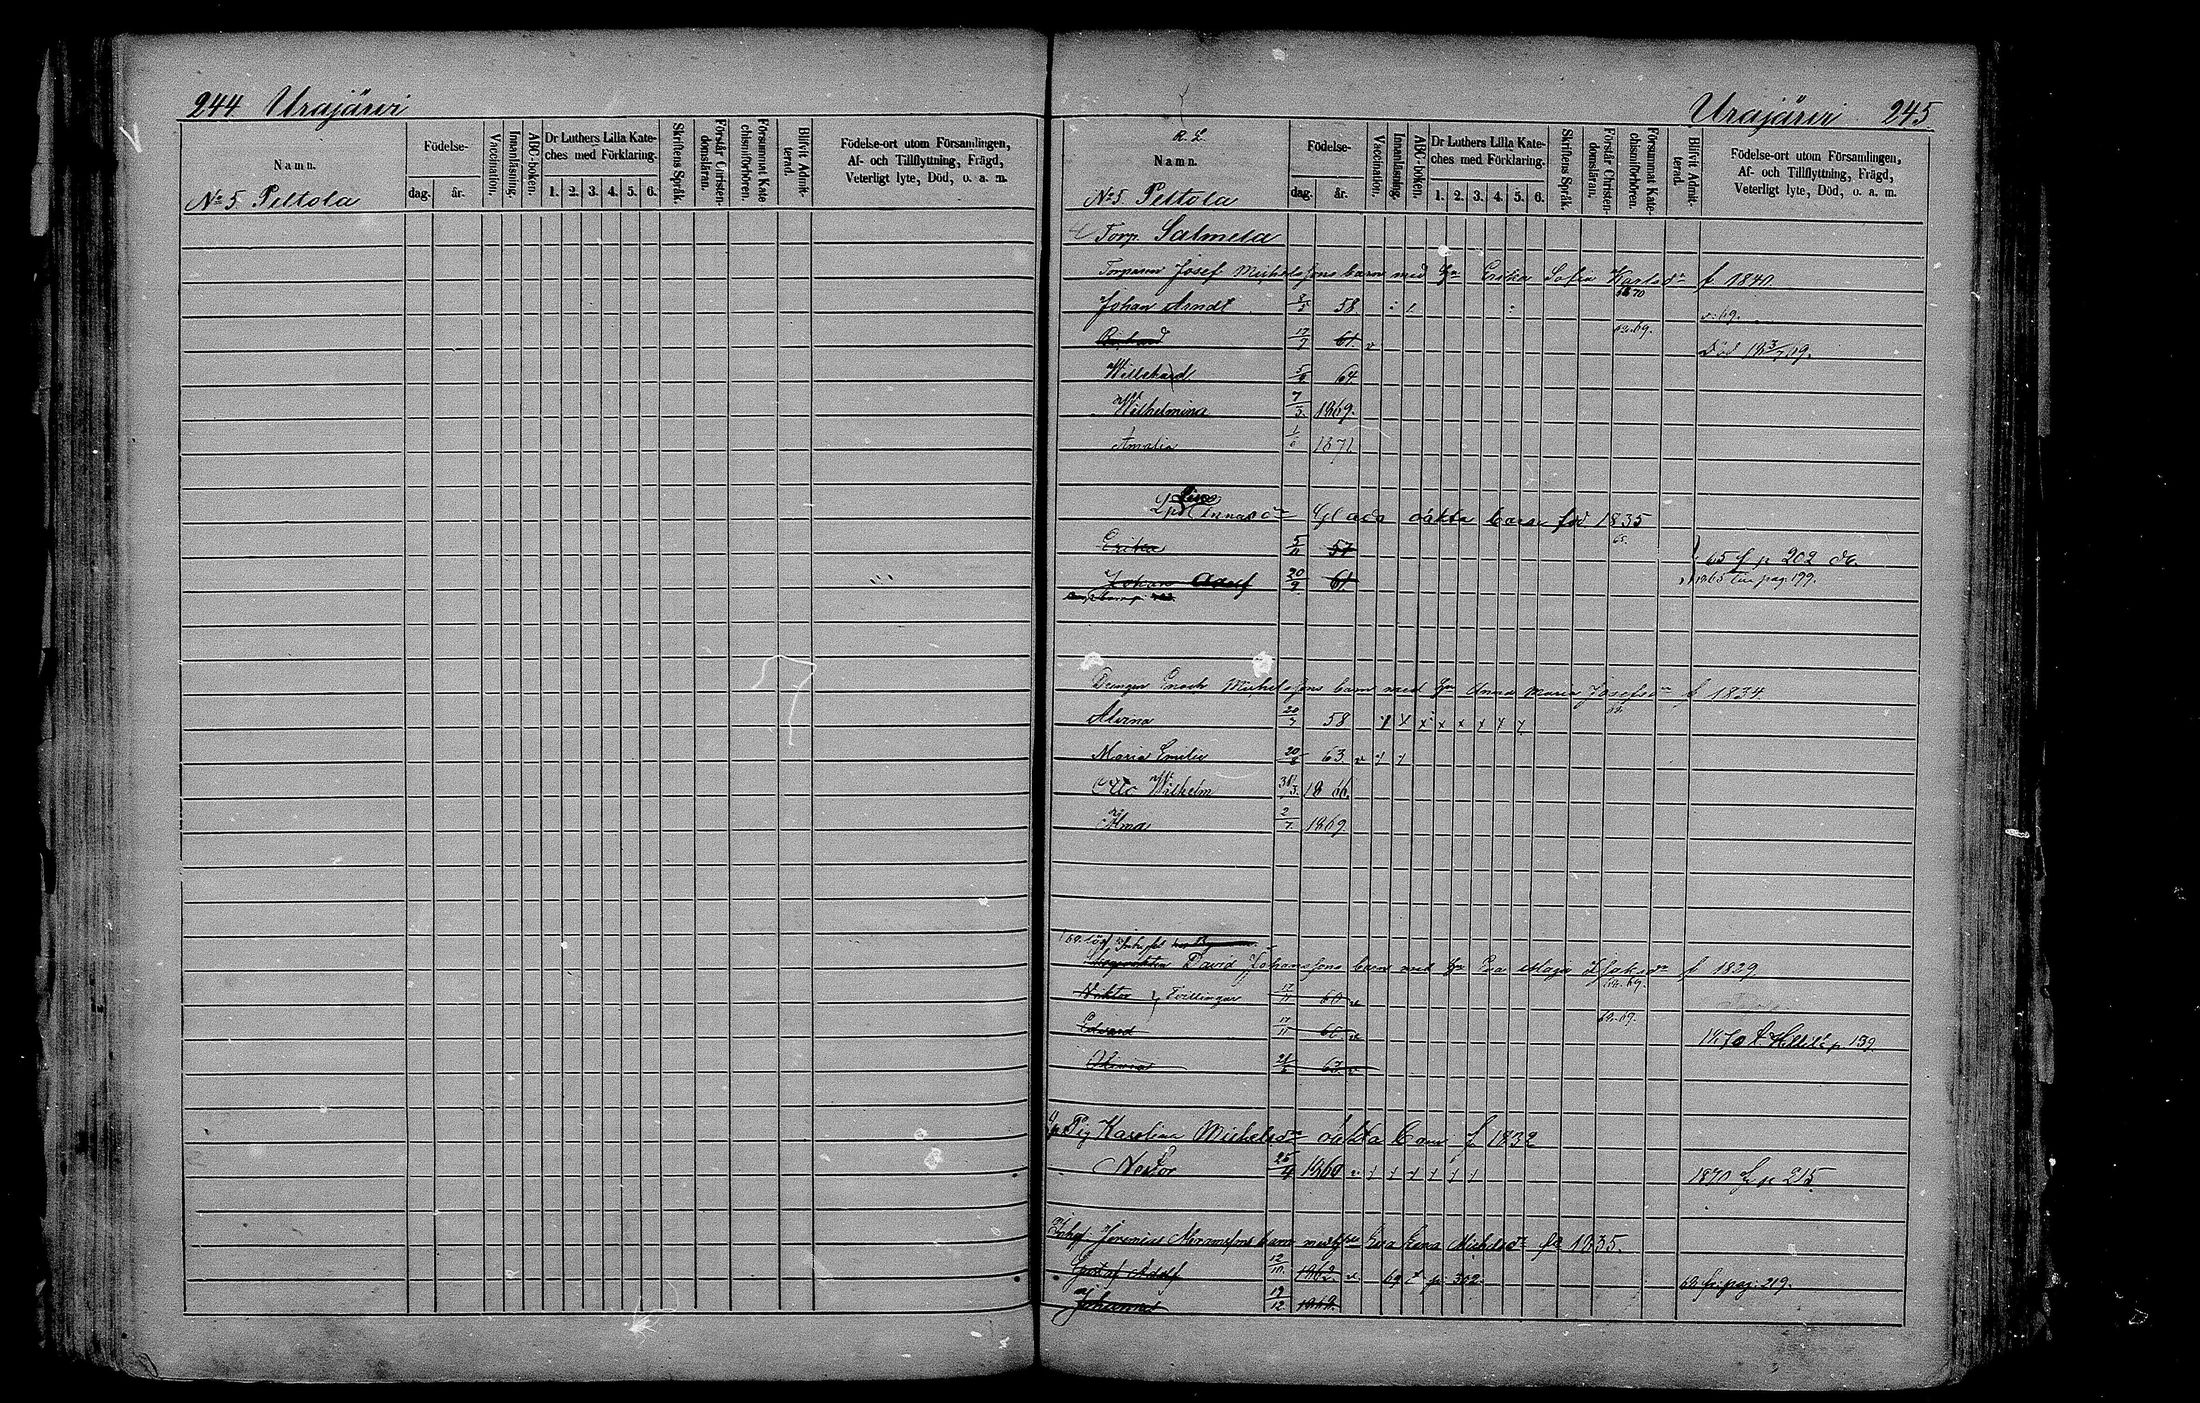 244 Urajärvi
Namn.
Födelse-
dag. år.
Vaccination.
Innanläsning.
ABC-boken.
Dr Luthers Lilla Kate-
ches med Förklaring.
1. 2. 3. 4. 5. 6.
Skriftens Språk.
Förstår Christen-
domsläran.
Försummat Kate-
chismiförhören.
Blifvit Admit-
terad.
Födelse-ort utom Församlingen,
Af- och Tillflyttning, Frägd,
Veterligt lyte, Död, o. a. m.
No 5 Peltola
Urajärvi 245
R. L.
Namn.
Födelse-
dag. år.
Vaccination.
Innanläsning.
ABC-boken.
Dr Luthers Lilla Kate-
ches med Förklaring.
1. 2. 3. 4. 5. 6.
Skriftens Språk.
Förstår Christen-
domsläran.
Försummat Kate-
chismiförhören.
Blifvit Admit-
terad.
Födelse-ort utom Församlingen,
Af- och Tillflyttning, Frägd,
Veterligt lyte, Död, o. a. m.
No 5 Peltola
Torp. Salmela
Torparen Josef Michelssons barn med Hu Erika Sofia Karlsdr f 1840
Johan Arndt 58 v. 69.
17/7 61 v 62.69. Död 18 3/7 69.
Willehard 5/9 64
Wilhelmina 7/3. 1869.
Amalia 1/6 1871
Annasdr oäkta barn född 1835
Erika 5/11 57 65 f p 202
Johan Adolf 20/9 61. 1865 pag. 199.
Drengen Enoch Michelssons barn med Hu Anna Maria Josefsdr f 1834
Alvina 20/7 58 x x x x x x
Maria Emilia 63. v
Otto Wilhelm 31/3. 1866.
Alma 2/7. 1869
69. Inhyses
David Johanssons barn med Hu Eva Maja Isaksdr f 1829
Viktor } Tvillingar 17/11 60 v 62.69.
Edvard 17/11 60 v 62.69. 1870 t p. 139.
63. v
Pig Karolina Michelsdr oäkta barn f 1832
Nestor 25/9 1860 v 1870 fr p 215.
Inhys Jeremias Abramssons barn med Lena Michelsdr 1835.
Gustaf Adolf 12/10. 1862. v 69 t p. 302. 69 fr. pag. 219.
Johannes 19/12. 1868.